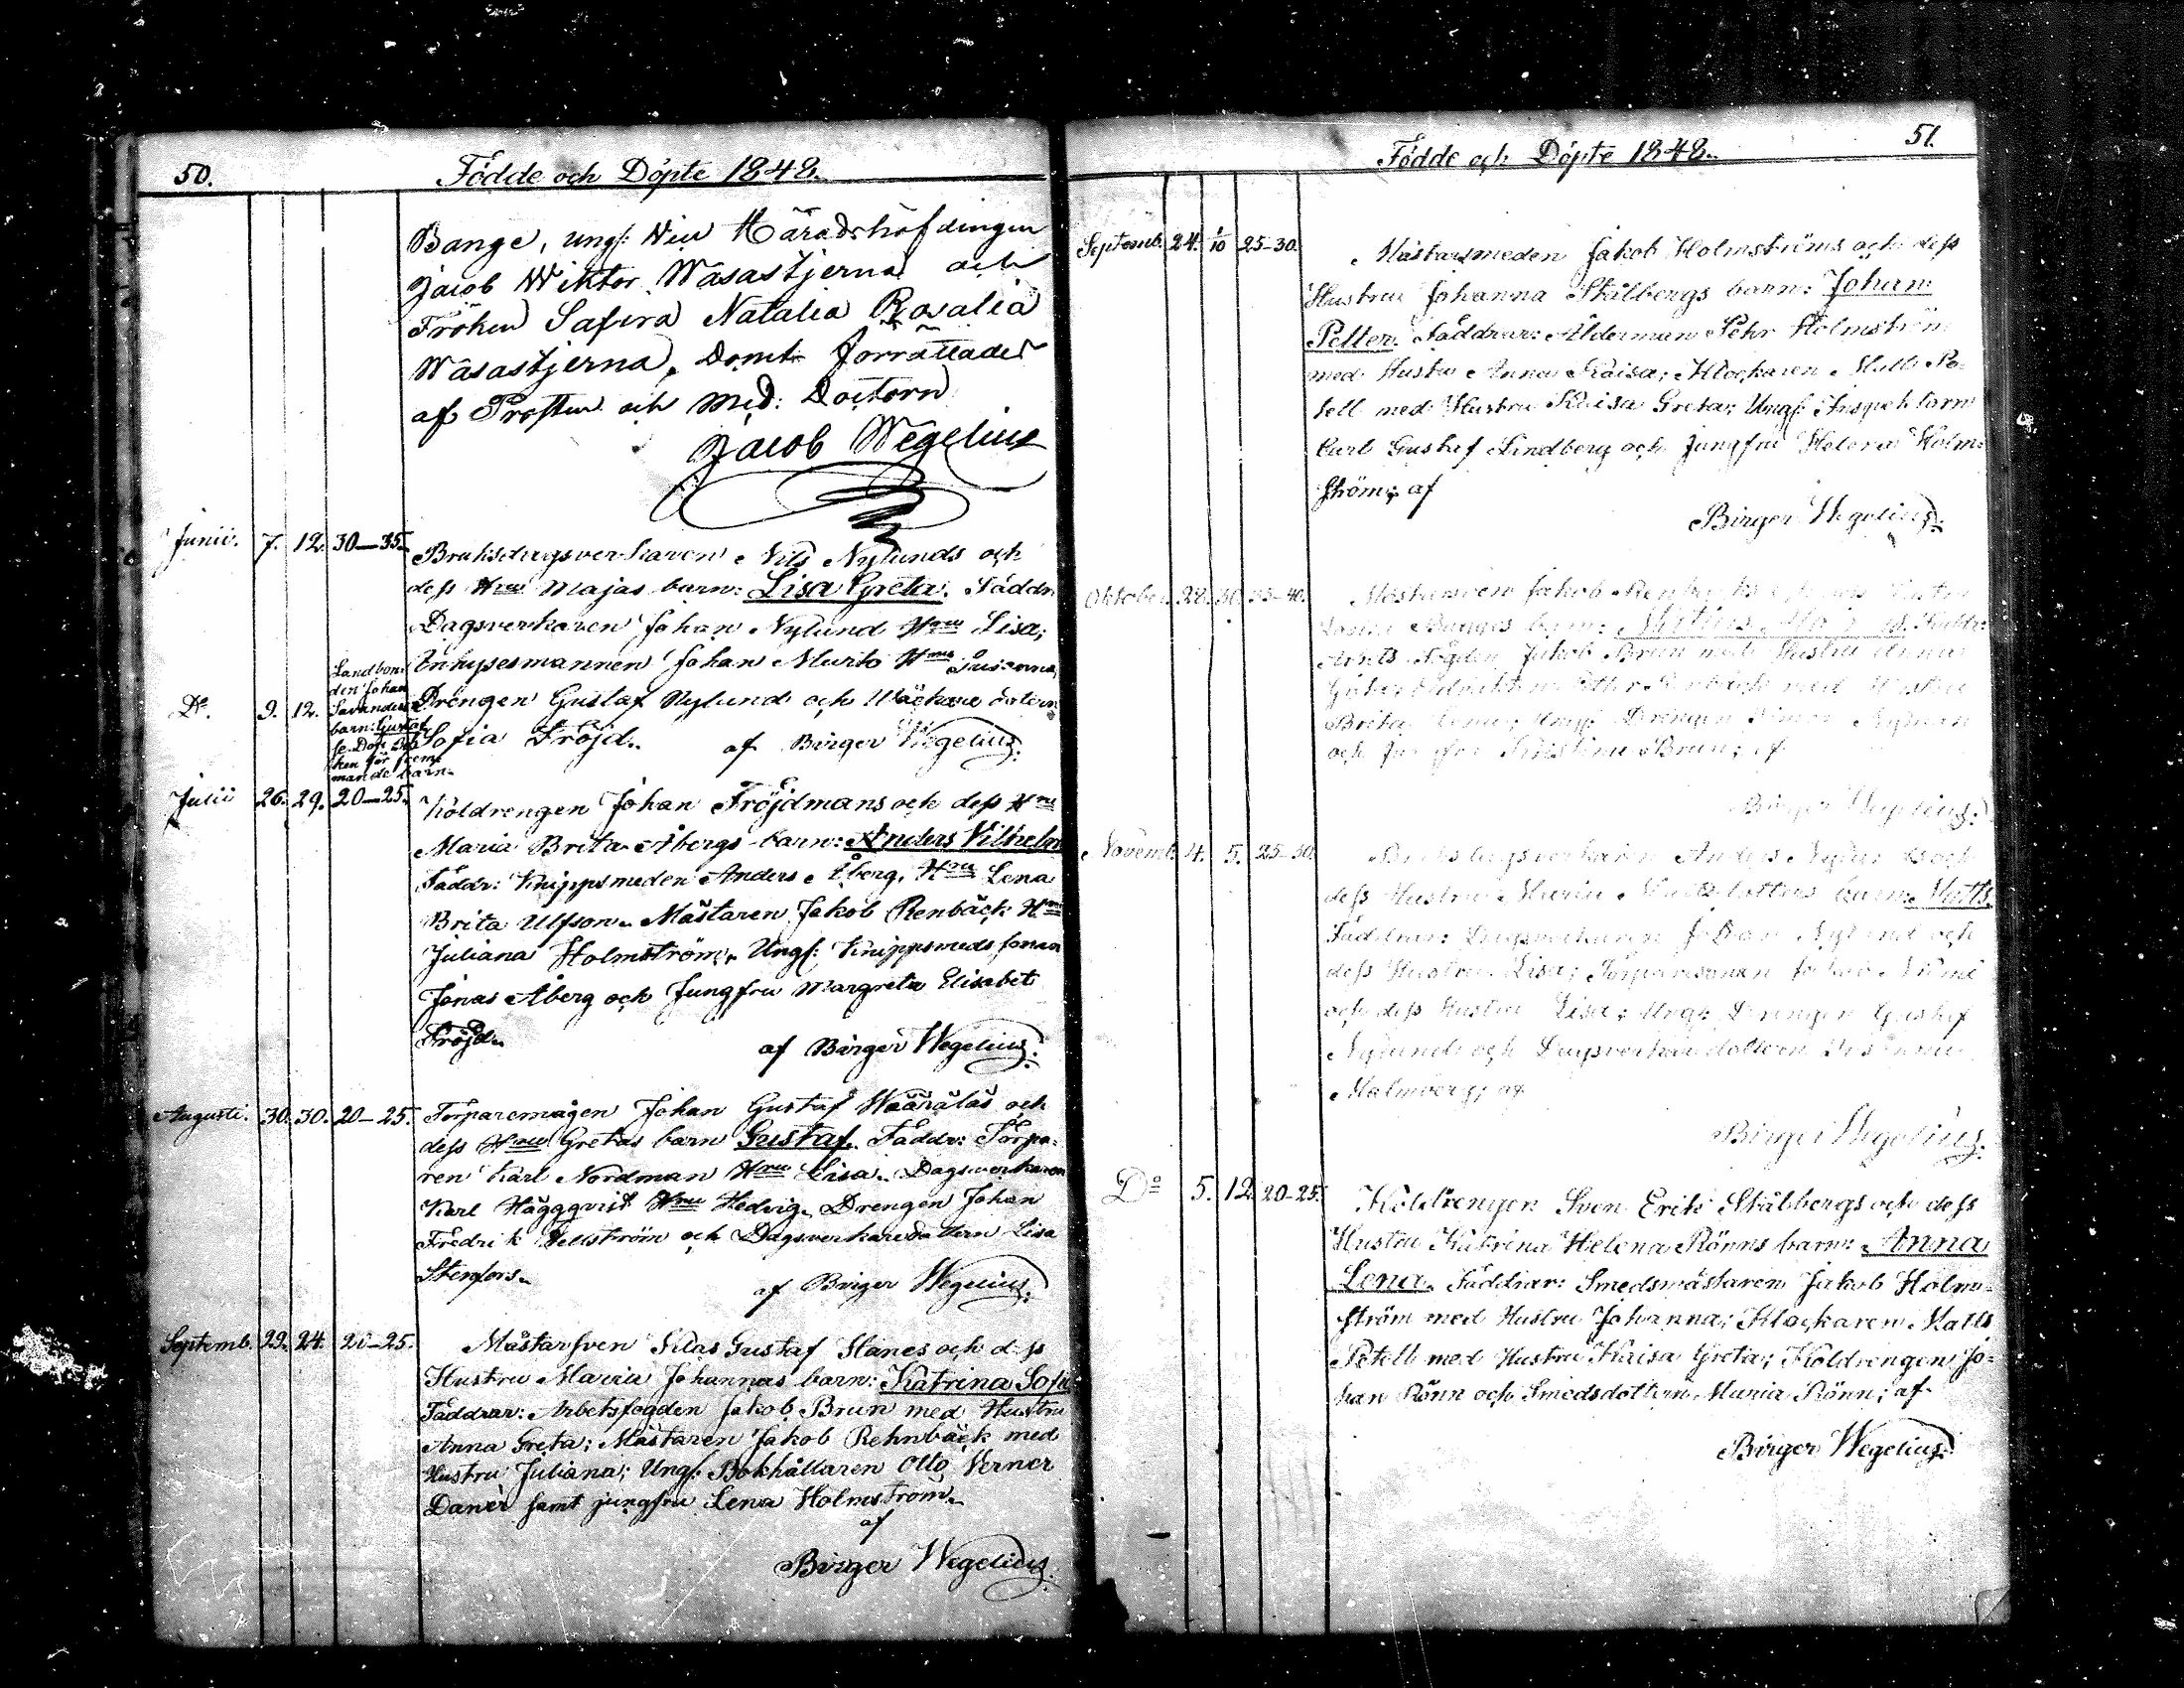 50.
Födde och Döpte 1848.
Bange, ungf: Vice Häradshöfdingen
Jacob Wiktor Wäsastjerna och
Fröken Safira Natalia Rosalia
Wäsastjerna, Domt förrättades
af Prosten och Med: Doctorn
Jacob Wegelius
Junii. 7. 12. 30-35. Bruksdagsverkaren Nils Nylunds och
dess Hru Majas barn: Lisa Greta. Faddr:
Dagsverkaren Johan Nylund Hru Lisa;
Inhysesmannen Johan Murto Hru Susanna,
Drengen Gustaf Nylund och
Sofia Fröjd. af Birger Wegelius.
Do. 9. 12. Landbon-
den Johan
barn: Gustaf,
se Dop
ken för främ-
mande barn.
Julii 26. 29. 20-25. Koldrengen Johan Fröjdmans och dess Hru
Maria Brita Åbergs barn: Anders Vilhelm
Faddr: Knippsmeden Anders Åberg, Hru Lena
Brita Ulfson. Mästaren Jakob Renbäck Hru
Juliana Holmström. Ungf: Knippsmeds sonen
Jonas Åberg och Jungfru Margreta Elisabet
Fröjd. af Birger Wegelius.
Augusti. 30. 30. 20-25. Torparemågen Johan Gustaf Wäärälas och
dess Hru Gretas barn Gustaf. Faddr: Torpa-
ren Karl Nordman Hru Lisa. Dagsverkaren
Karl Häggqvist Hru Hedvig. Drengen Johan
Fredrik och Dagsverkaredottern Lisa
Stenfors. af Birger Wegelius.
Septemb. 23. 24. 20-25. Mästarsven Silas Gustaf Slanes och dess
Hustru Maria Johannas barn: Katrina Sofia
Faddrar: Arbetsfogden Jakob Brun med Hustru
Anna Greta; Mästaren Jakob Rehnbäck med
Hustru Juliana; Ungf: Bokhållaren Otto Verner
Danér samt jungfru Lena Holmström.
af
Birger Wegelius.
51.
Födde och Döpte 1848.
Septemb. 24. 1/10 25-30. Mästarsmeden Jakob Holmströms och dess
Hustru Johanna Stålbergs barn: Johan
Petter. Faddrar: Ålderman Pehr Holmström
med Hustru Anna Kaisa; Klockaren Matts Pe-
tell med Hustru Kaisa Greta; Ungf: Inspektorn
Carl Gustaf Lindberg och Jungfru Helena Holm-
ström; af
Birger Wegelius.
Oktober. 28. 35-40. Mästarsven Jakob
barn: Faddr:
Arbets Fogden Jakob Brun med Hustru Anna
Greta; med Hustru
Brita Ungf: Drengen Nyman
och Jungfru Kristina Brun; af
Birger Wegelius.
Novemb. 4. 5. 25-30. Bruksdagsverkaren Anders Nylunds och
dess Hustru Maria Mattsdotters barn: Matts.
Faddrar: Dagsverkaren Johan Nylund och
dess Hustru Lisa; Torparesonen Jakob
och dess Hustru Lisa; Ungf: Drengen Gustaf
Nylund och Dagsverkaredottern Susanna
Malmberg; af
Birger Wegelius.
Do 5. 12. 20-25. Koldrengen Sven Erik Stålbergs och dess
Hustru Katrina Helena Rönns barn: Anna
Lena. Faddrar: Smedsmästaren Jakob Holm-
ström med Hustru Johanna; Klockaren Matts
Petell med Hustru Kaisa Greta; Koldrengen Jo-
han Rönn och Smedsdottern Maria Rönn; af
Birger Wegelius.